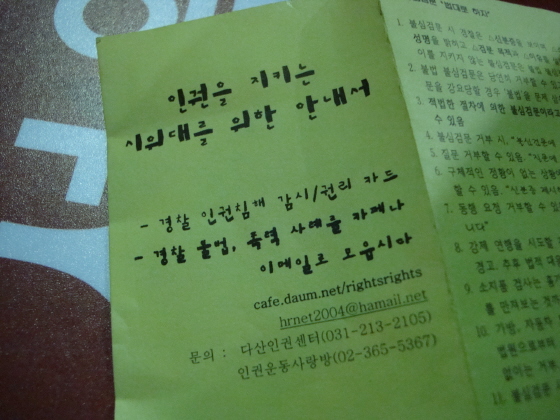 인권을 지키는
시위대를 위한 안내서
- 경찰 인권침해 감시/권리 카드
- 경찰 불법, 폭력 사례를 카페나
이메일로 모읍시다
cafe.daum.net/rightsrights
hrnet2004@hamail.net
문의 : 다산인권센터(031-213-2105)
인권운동사랑방(02-365-5367)
"법대로 하자"
1. 불심검문 시 경찰은
성명을 밝히고 소검문 목적과
이를 지키지 않는 불심검문은 불법
2. 불법 불심검문은 당연히 거부할 수
문을 강요당할 경우 "불법을 문제
3. 적법한 절차에 의한 불심검문이라고
수 있음
4. 불심검문 거부 시, "불심검문에
5. 질문 거부할 수 있음. "질문에
6. 구체적인 정황이 없는 상황에
할 수 있음. "신분증 제시
7. 동행 요청 거부할 수 있
니다"
8. 강제 연행을 시도할
경고, 추후 법적 대응
9. 소지품 검사는 흉기
를 만져보는 정도
10. 가방, 자동차
법원으로부터
없이는 거부
11. 불심검문